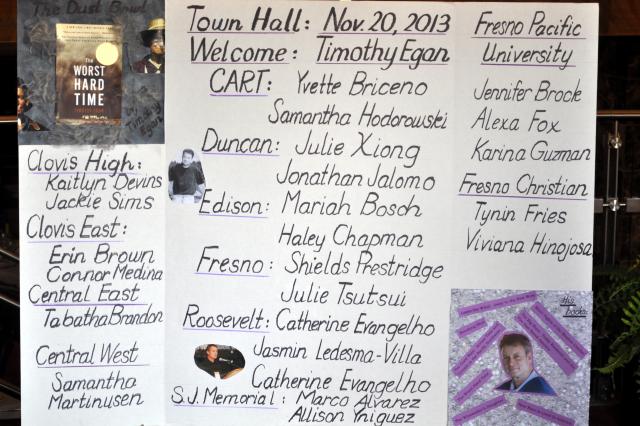 The Dust Bowl
The
WORST
HARD
TIME
TIMOTHY EGAN
Clovis High:
Kaitlyn Devins
Jackie Sims
Clovis East:
Erin Brown
Connor Medina
Central East
Tabatha Brandon
Central West
Samantha
Martinusen
Town Hall: Nov. 20, 2013
Welcome: Timothy Egan
CART: Yvette Briceno
Samantha Hodorowski
Duncan: Julie Xiong
Jonathan Jalomo
Edison: Mariah Bosch
Haley Chapman
Fresno: Shields Prestridge
Julie Tsutsui
Roosevelt: Catherine Evangelho
Jasmin Ledesma-Villa
Catherine Evangelho
S.J. Memorial: Marco Alvarez
Allison Yniguez
Fresno Pacific
University
Jennifer Brock
Alexa Fox
Karina Guzman
Fresno Christian
Tynin Fries
Viviana Hinojosa
His
books: